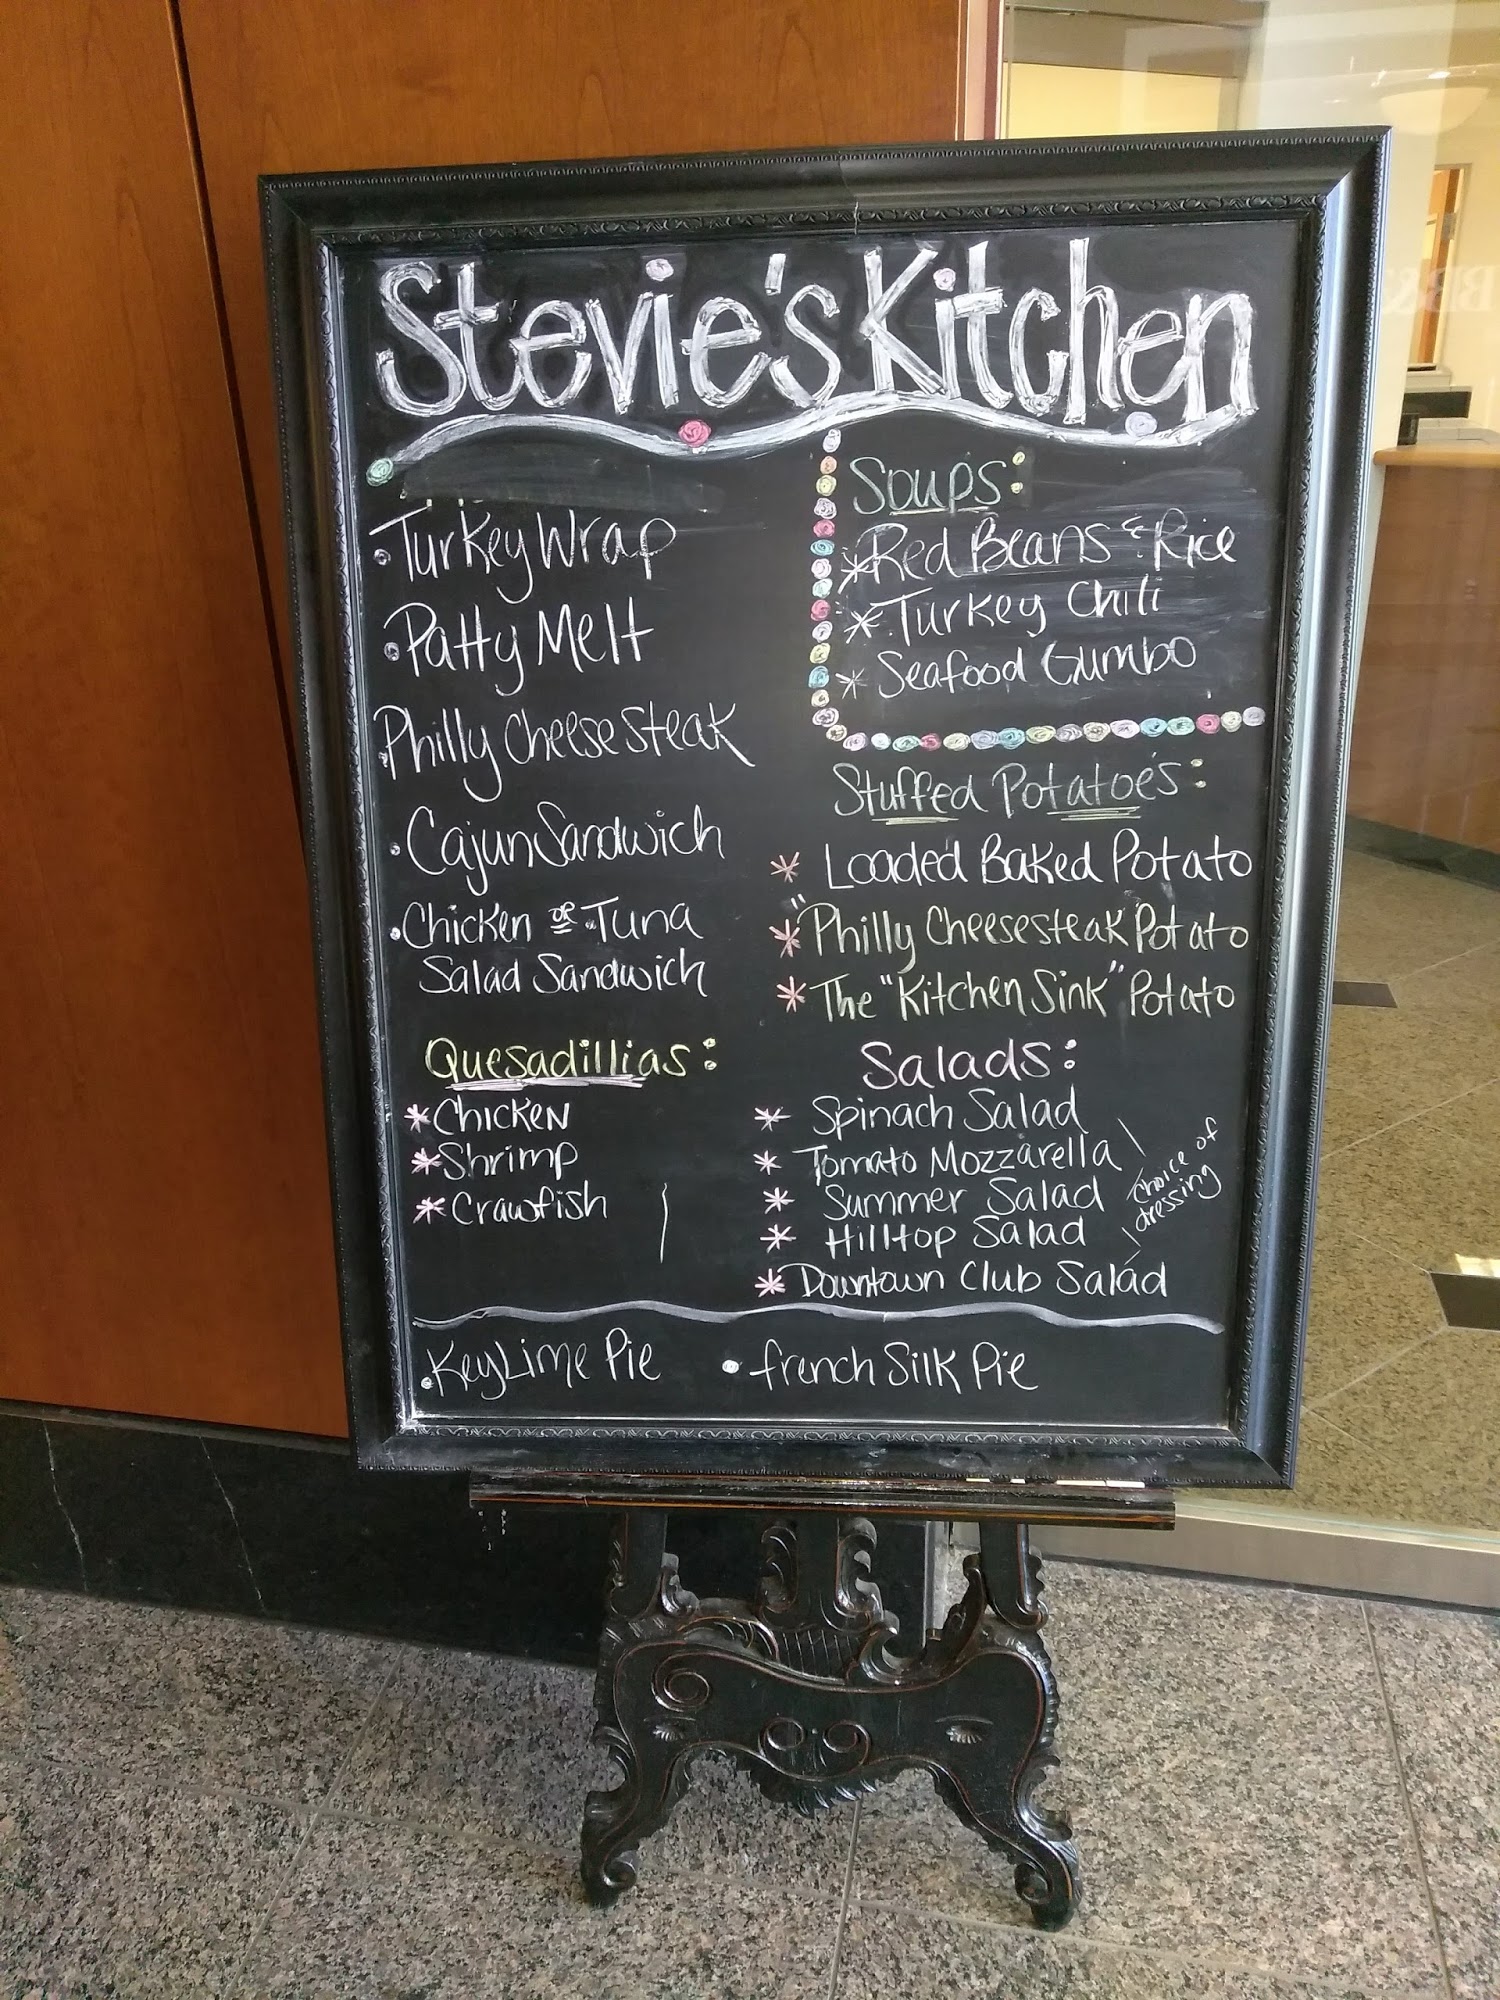 Stevie's Kitchen
• Turkey Wrap
• Patty Melt
• Philly Cheese Steak
• Cajun Sandwich
• Chicken or Tuna
Salad Sandwich
Quesadillias:
* Chicken
* Shrimp
* Crawfish
Soups:
* Red Beans & Rice
* Turkey Chili
* Seafood Gumbo
Stuffed Potatoe's:
* Loaded Baked Potato
* "Philly Cheesesteak Potato
* The "Kitchen Sink" Potato
Salads:
* Spinach Salad
* Tomato Mozzarella
* Summer Salad
* Hilltop Salad
* Downtown Club Salad
choice of
dressing
• Key Lime Pie
• french Silk Pie